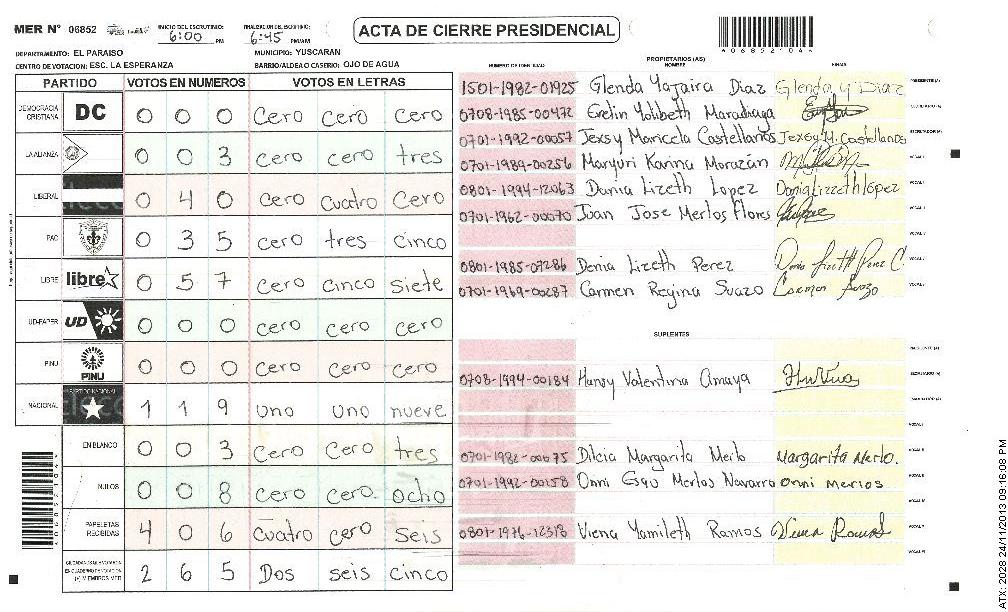 MER Nº 06852 INICIO DEL ESCRUTINIO: 6:00 PM FINALIZACION DEL ESCRUTINIO: 6:45 PM/AM
ACTA DE CIERRE PRESIDENCIAL
DEPARTAMENTO: EL PARAISO MUNICIPIO: YUSCARAN
CENTRO DE VOTACION: ESC. LA ESPERANZA BARRIO/ALDEA O CASERIO: OJO DE AGUA
PARTIDO VOTOS EN NUMEROS VOTOS EN LETRAS
DEMOCRACIA CRISTIANA DC 0 0 0 Cero Cero Cero
LA ALIANZA 0 0 3 Cero cero tres
LIBERAL 0 4 0 Cero Cuatro Cero
PAC 0 3 5 cero tres cinco
LIBRE libre 0 5 7 Cero Cinco Siete
UD-FAPER UD 0 0 0 cero cero cero
PINU PINU 0 0 0 Cero cero Cero
NACIONAL PARTIDO NACIONAL 1 1 9 uno uno nueve
EN BLANCO 0 0 3 Cero Cero tres
NULOS 0 0 8 Cero Cero ocho
PAPELETAS RECIBIDAS 4 0 6 Cuatro cero Seis
2 6 5 Dos seis cinco
4 0 6 8 5 2 1 0 4 4
PROPIETARIOS (AS)
NUMERO DE IDENTIDAD NOMBRE FIRMA
1501-1982-01925 Glenda Yajaira Diaz Glenda Y Diaz PRESIDENTE (A)
0708-1985-00472 Evelin Yolibeth Maradiaga SECRETARIO (A)
0701-1992-00057 Jexsy Maricela Castellanos Jexsy M. Castellanos ESCRUTADOR (A)
0701-1989-00256 Maryuri Karina Morazán VOCAL I
0801-1994-12063 Dania Lizeth Lopez Dania Lizzeth lópez
0701-1962-00070 Juan Jose Merlos Flores
0801-1985-07286 Denia Lizeth Perez
0701-1969-00287 Carmen Regina Suazo Carmen Suazo
SUPLENTES
PRESIDENTE (A)
0708-1994-00184 Hansy Valentina Amaya SECRETARIO (A)
ESCRUTADOR (A)
0701-1982-00075 Dilcia Margarita Merlo Margarita Merlo.
0701-1992-00158 Onni Merlos Navarro Onni Merlos
0801-1976-12318 Viena Yamileth Ramos Viena Ramos
ATX: 2028 24/11/2013 09:16:08 PM